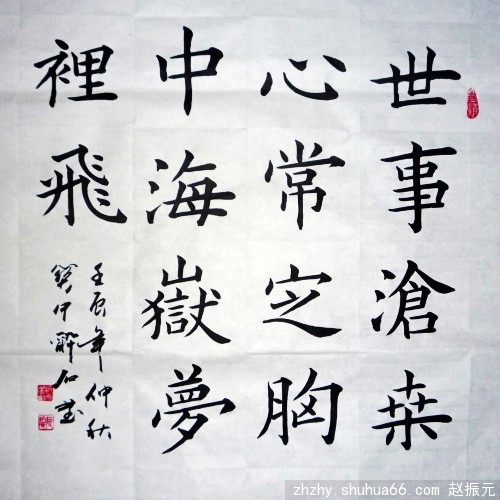 世事滄桒
心常定胸
中海嶽夢
裡飛
壬辰年仲秋
zhzhy.shuhua66.com 赵振元